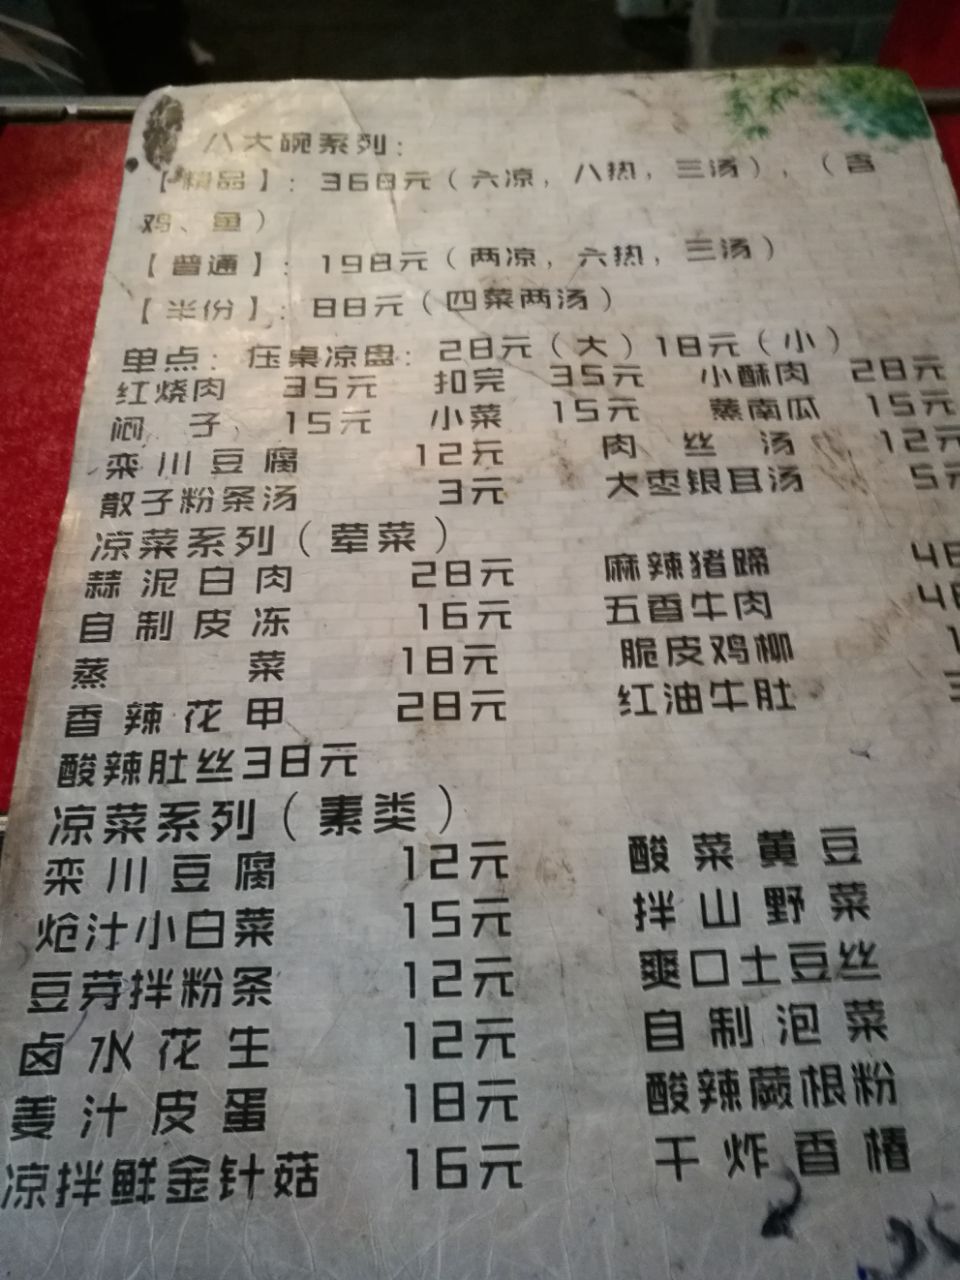 八大碗系列：
【精品】：368元（六凉，八热，三汤），（含
鸡、鱼）
【普通】：198元（两凉，六热，三汤）
【半份】：88元（四菜两汤）
单点：压桌凉盘：28元（大）18元（小）
红烧肉 35元 扣完 35元 小酥肉 28元
闷 子 15元 小菜 15元 蒸南瓜 15元
栾川豆腐 12元 肉丝汤 12元
散子粉条汤 3元 大枣银耳汤 5元
凉菜系列（荤菜）
蒜泥白肉 28元 麻辣猪蹄
自制皮冻 16元 五香牛肉
蒸菜 18元 脆皮鸡柳
香辣花甲 28元 红油牛肚
酸辣肚丝38元
凉菜系列（素类）
栾川豆腐 12元 酸菜黄豆
炝汁小白菜 15元 拌山野菜
豆芽拌粉条 12元 爽口土豆丝
卤水花生 12元 自制泡菜
姜汁皮蛋 18元 酸辣蕨根粉
凉拌鲜金针菇 16元 干炸香椿